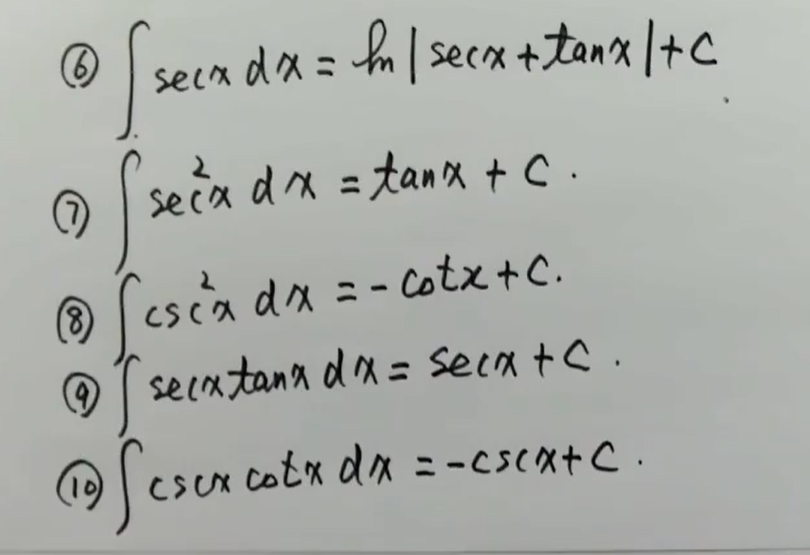 ⑥ ∫ secx dx = ln|secx + tanx| + C
⑦ ∫ sec²x dx = tanx + C.
⑧ ∫ csc²x dx = -cotx + C.
⑨ ∫ secx tanx dx = secx + C.
⑩ ∫ cscx cotx dx = -cscx + C.